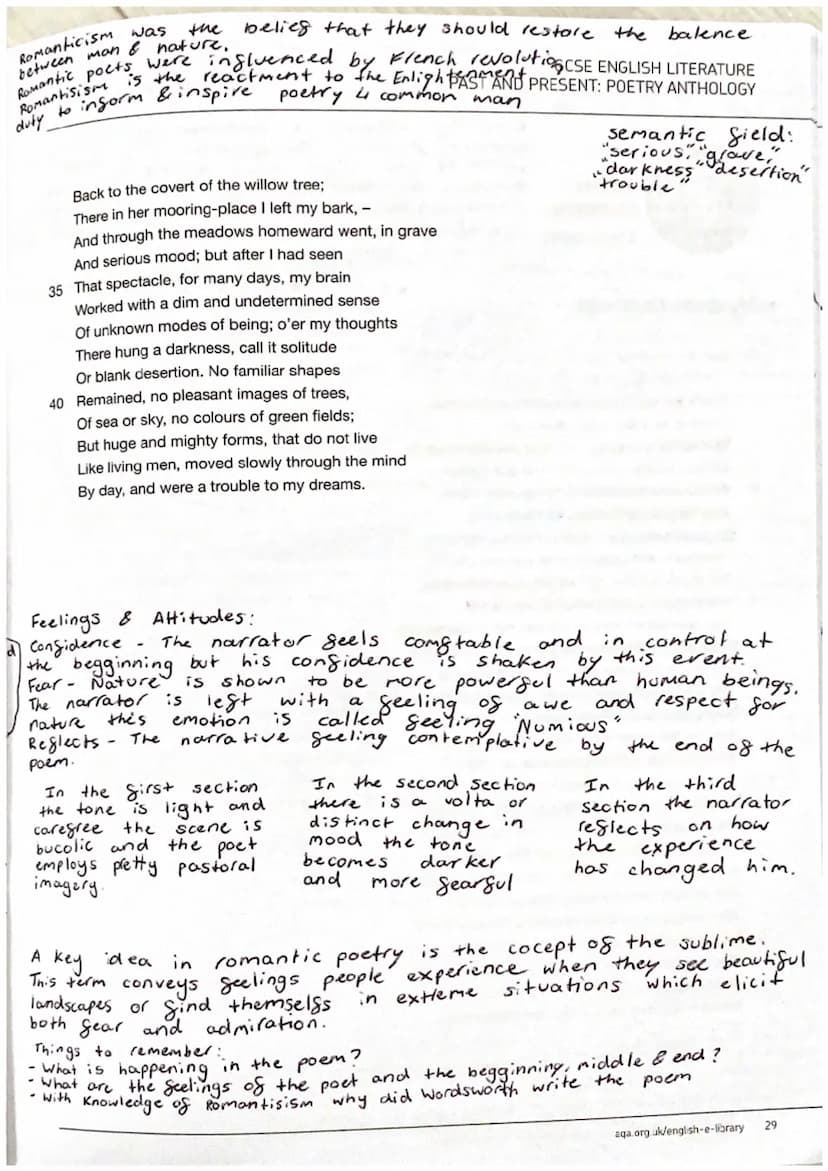 Romanticism was the belief that they should restore the balence
between man & nature.
Romantic poets were influenced by French revolution
GCSE ENGLISH LITERATURE
Romantisism is the reactment to the Enlightenment
PAST AND PRESENT: POETRY ANTHOLOGY
duty to inform & inspire poetry 4 common man
semantic field:
"serious", "grave,"
"darkness" "desertion"
trouble"
Back to the covert of the willow tree;
There in her mooring-place I left my bark, –
And through the meadows homeward went, in grave
And serious mood; but after I had seen
35 That spectacle, for many days, my brain
Worked with a dim and undetermined sense
Of unknown modes of being; o'er my thoughts
There hung a darkness, call it solitude
Or blank desertion. No familiar shapes
40 Remained, no pleasant images of trees,
Of sea or sky, no colours of green fields;
But huge and mighty forms, that do not live
Like living men, moved slowly through the mind
By day, and were a trouble to my dreams.
Feelings & Attitudes:
Confidence - The narrator feels comftable and in control at
the begginning but his confidence is shaken by this event.
Fear - Nature is shown to be more powerful than human beings.
The narrator is left with a feeling of awe and respect for
nature this emotion is called feeling "Numious"
Reflects - The narrative feeling contemplative by the end of the
poem.
In the first section
the tone is light and
carefree the scene is
bucolic and the poet
employs pretty pastoral
imagery.
In the second section
there is a volta or
distinct change in
mood the tone
becomes darker
and more fearful
In the third
section the narrator
reflects on how
the experience
has changed him.
A key idea in romantic poetry is the cocept of the sublime.
This term conveys feelings people experience when they see beautiful
landscapes or find themselfs in extreme situations which elicit
both fear and admiration.
Things to remember:
- What is happening in the poem?
- What are the feelings of the poet and the begginning, middle & end?
- With knowledge of Romantisism why did Wordsworth write the poem
aqa.org.uk/english-e-library 29